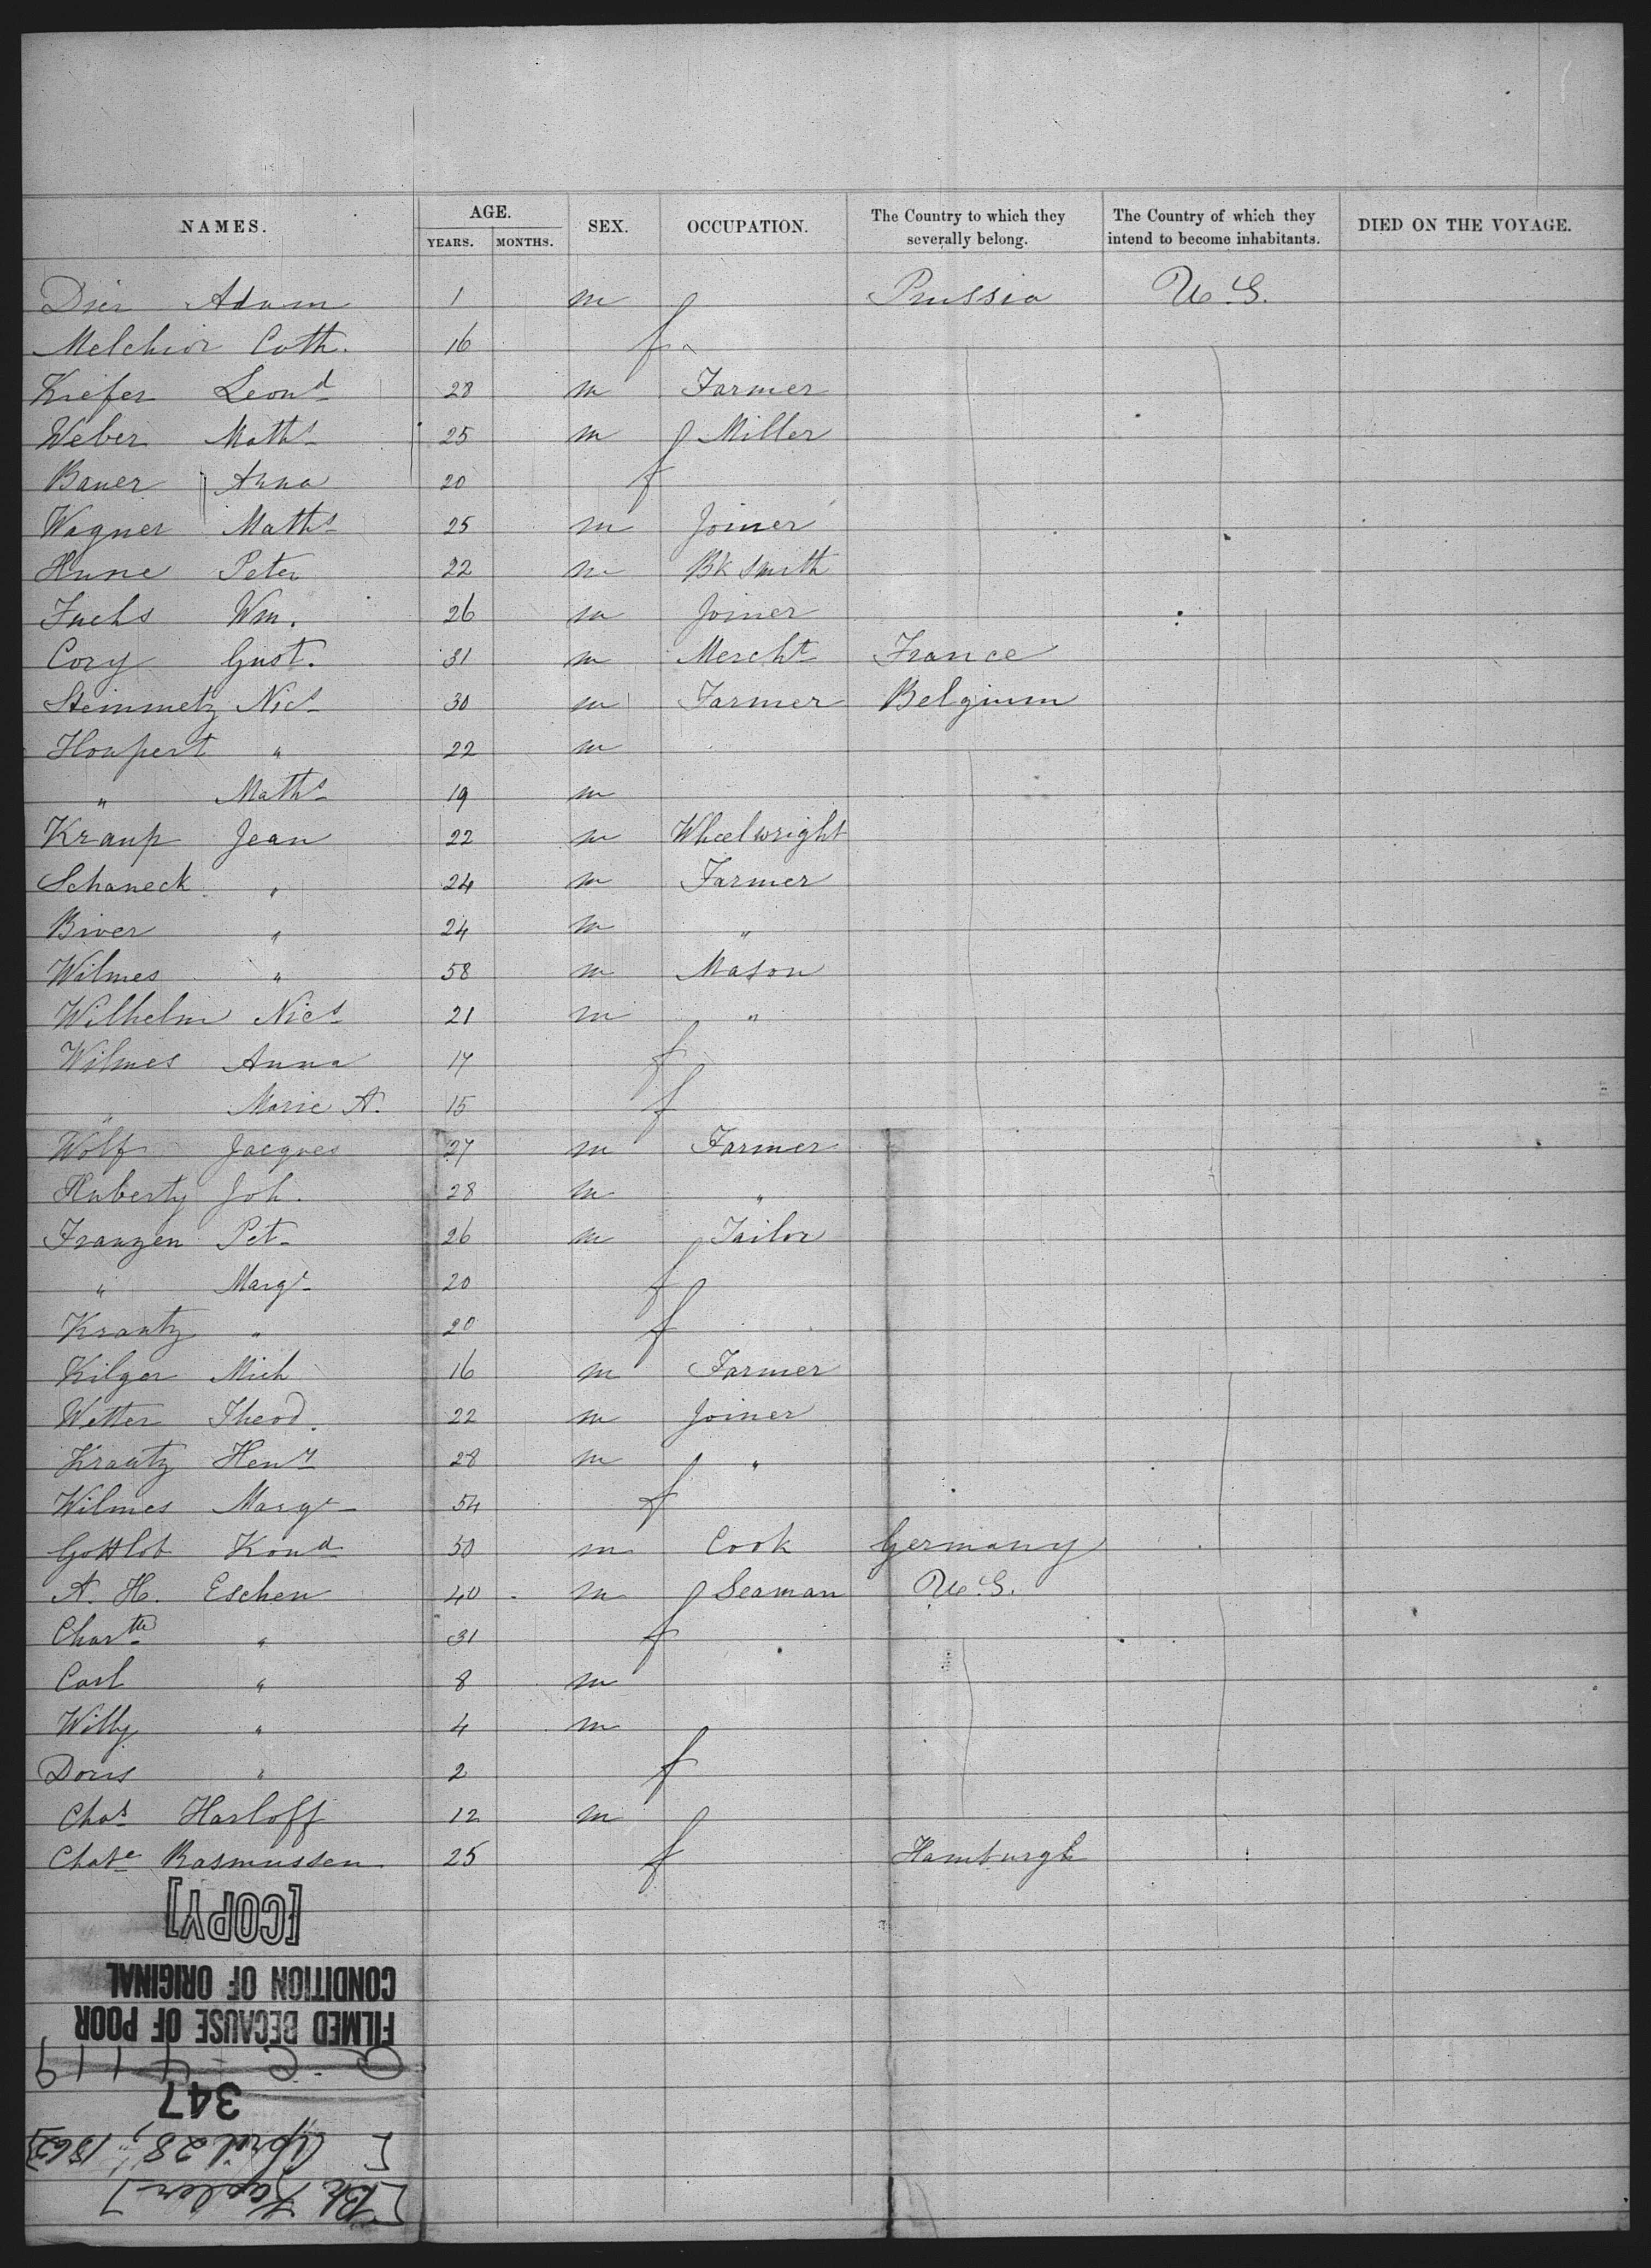 NAMES. AGE. SEX. OCCUPATION. The Country to which they severally belong. The Country of which they intend to become inhabitants. DIED ON THE VOYAGE.
YEARS. MONTHS.
Dier Adam 1 m Prussia U.S.
Melchior Cath. 16 f
Kiefer Leond 28 m Farmer
Weber Maths 25 m Miller
Bauer Anna 20 f
Wagner Maths 25 m Joiner
Hune Peter 22 m Bk Smith
Fuchs Wm. 26 m Joiner
Cory Gust. 31 m Mercht France
Steinmetz Nics 30 m Farmer Belgium
Houpert " 22 m
" Maths 19 m
Kraup Jean 22 m Wheelwright
Schaneck " 24 m Farmer
Biver " 24 m "
Wilmes " 58 m Mason
Wilhelm Nics 21 m "
Wilmes Anna 17 f
" Marie A. 15 f
Wolf Jacques 27 m Farmer
Huberty Joh. 28 m "
Franzen Pet. 26 m Tailor
" Margt 20 f
Krantz " 20 f
Kilger Mich 16 m Farmer
Wetter Theod. 22 m Joiner
Krantz Henry 28 m "
Wilmes Margt 54 f
Gottlob Kond 50 m Cook Germany
A. H. Eschen 40 m Seaman U.S.
Chartte " 31 f
Carl " 8 m
Willy " 4 m
Doris " 2 f
Chas Harloff 12 m
Chate Rasmussen 25 f Hamburgh
[COPY]
CONDITION OF ORIGINAL
FILMED BECAUSE OF POOR
347
[April 28, 1862]
[Bk Kepler]